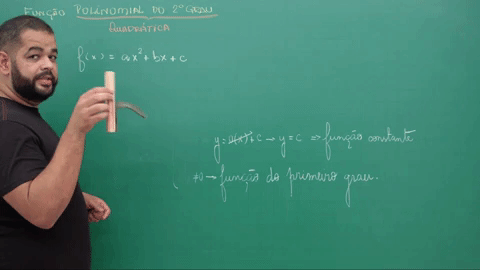 FUNÇÃO POLINOMIAL DO 2º GRAU
QUADRÁTICA
f(x) = ax² + bx + c
y = a(x) + c → y = c ⇒ função constante
≠0 → função do primeiro grau.